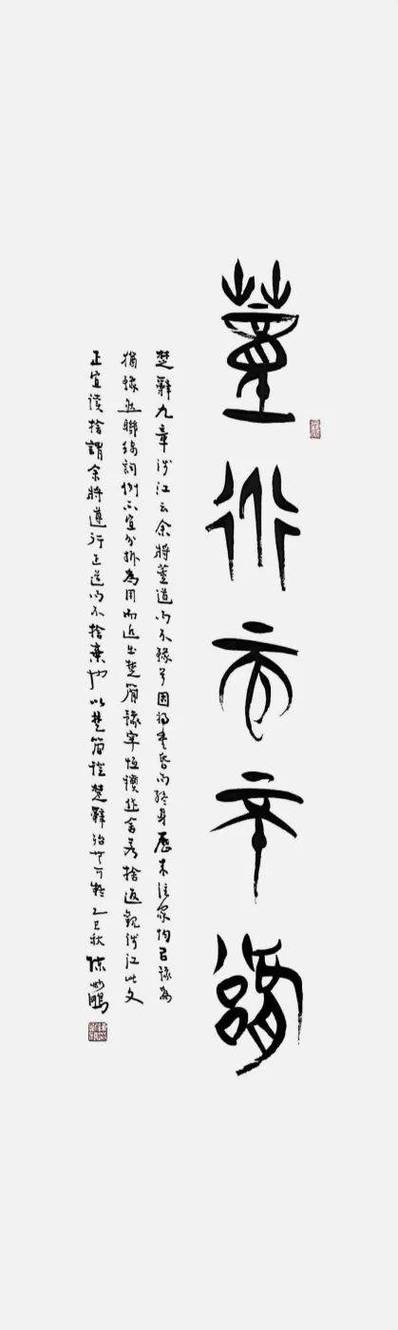 董道而不豫
楚辭九章涉江云余將董道而不豫兮固將重昏而終身歷來注家均以豫為
猶豫然聯綿詞例不宜分拆為用而近出楚簡豫字恒讀作舍若捨返觀涉江此文
正宜讀捨謂余將遵行正道而不捨棄也以楚簡證楚辭殆亡可疑乙巳秋陳斯鵬